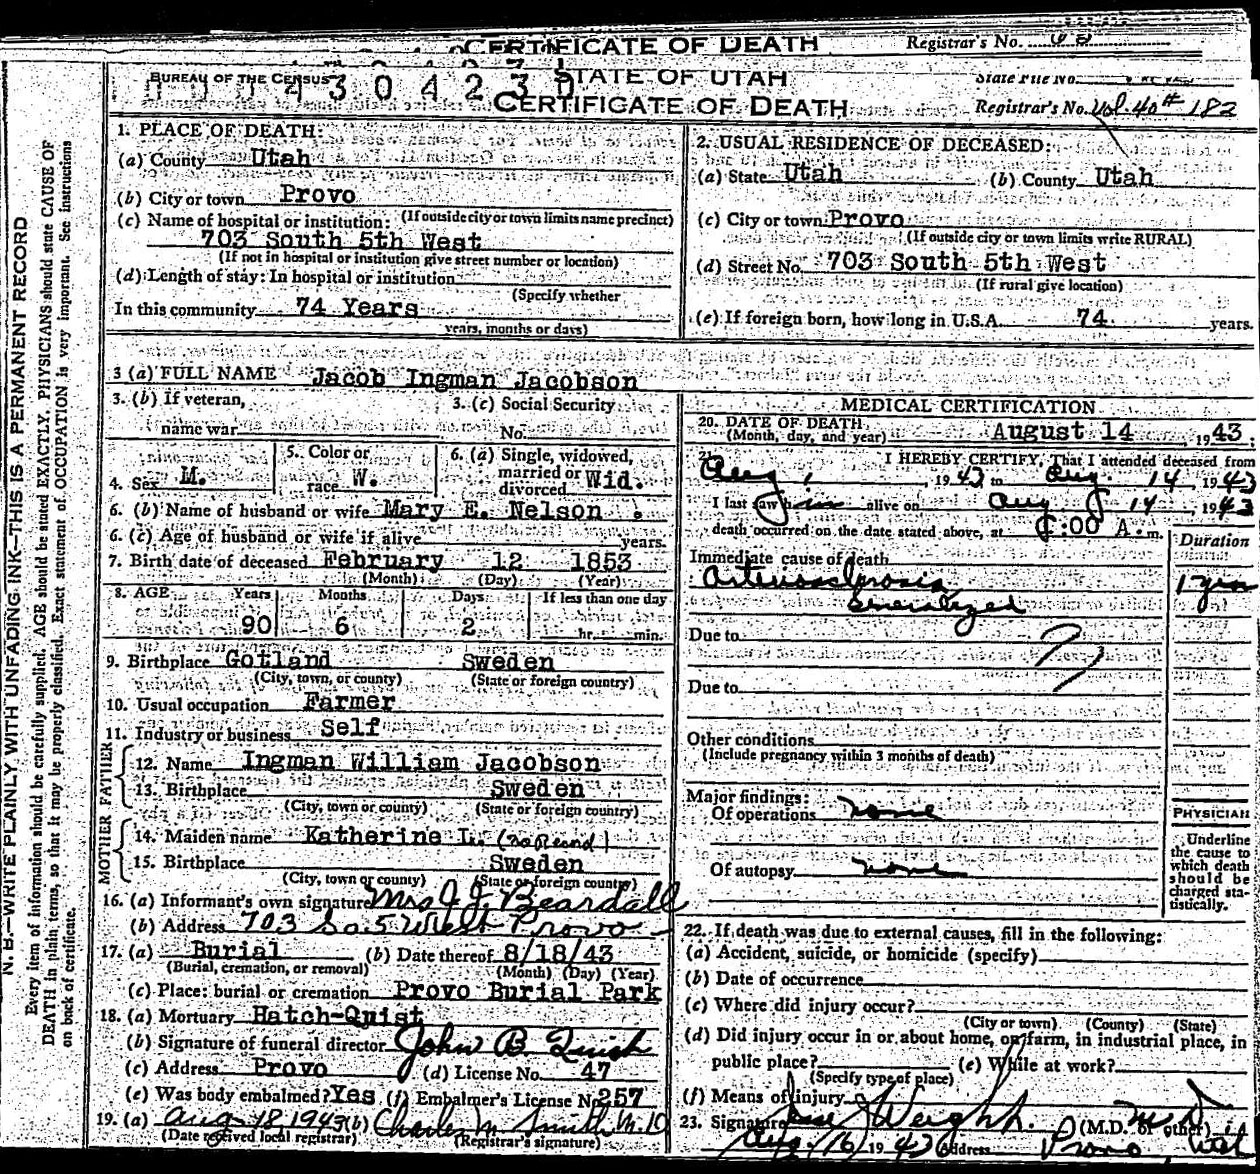 CERTIFICATE OF DEATH Registrar's No.
BUREAU OF THE CENSUS STATE OF UTAH State File No.
CERTIFICATE OF DEATH Registrar's No. Vol. 40 # 182
N. B.—WRITE PLAINLY WITH UNFADING INK—THIS IS A PERMANENT RECORD
Every item of information should be carefully supplied. AGE should be stated EXACTLY. PHYSICIANS should state CAUSE OF
DEATH in plain terms, so that it may be properly classified. Exact statement of OCCUPATION is very important. See instructions
on back of certificate.
1. PLACE OF DEATH:
(a) County Utah
(b) City or town Provo
(If outside city or town limits name precinct)
(c) Name of hospital or institution:
703 South 5th West
(If not in hospital or institution give street number or location)
(d) Length of stay: In hospital or institution
(Specify whether
In this community 74 Years
years, months or days)
2. USUAL RESIDENCE OF DECEASED:
(a) State Utah (b) County Utah
(c) City or town Provo
(If outside city or town limits write RURAL)
(d) Street No. 703 South 5th West
(If rural give location)
(e) If foreign born, how long in U.S.A. 74 years.
3 (a) FULL NAME Jacob Ingman Jacobson
3. (b) If veteran, 3. (c) Social Security
name war No.
4. Sex M. 5. Color or race W. 6. (a) Single, widowed, married or divorced Wid.
6. (b) Name of husband or wife Mary E. Nelson
6. (c) Age of husband or wife if alive years.
7. Birth date of deceased February 12 1853
(Month) (Day) (Year)
8. AGE Years Months Days If less than one day
90 6 2 hr. min.
9. Birthplace Gotland Sweden
(City, town, or county) (State or foreign country)
10. Usual occupation Farmer
11. Industry or business Self
FATHER
12. Name Ingman William Jacobson
13. Birthplace Sweden
(City, town or county) (State or foreign country)
MOTHER
14. Maiden name Katherine L. (no Record)
15. Birthplace Sweden
(City, town or county) (State or foreign country)
16. (a) Informant's own signature Mrs J. J. Beardall
(b) Address 703 So. 5 West Provo
17. (a) Burial (b) Date thereof 8/18/43
(Burial, cremation, or removal) (Month) (Day) (Year)
(c) Place: burial or cremation Provo Burial Park
18. (a) Mortuary Hatch-Quist
(b) Signature of funeral director John B Quist
(c) Address Provo (d) License No. 47
(e) Was body embalmed? Yes (f) Embalmer's License No. 257
19. (a) Aug 18, 1943 (b) Charles M. Smith M.D
(Date received local registrar) (Registrar's signature)
MEDICAL CERTIFICATION
20. DATE OF DEATH August 14, 1943.
(Month, day, and year)
21. I HEREBY CERTIFY, That I attended deceased from
Aug 1, 1943 to Aug. 14, 1943
I last saw him alive on Aug 14, 1943
death occurred on the date stated above, at :00 A.m.
Immediate cause of death Duration
Arteriosclerosis
Generalized
Due to
Due to
Other conditions
(Include pregnancy within 3 months of death)
Major findings:
Of operations none
Of autopsy none
PHYSICIAN
Underline
the cause to
which death
should be
charged sta-
tistically.
22. If death was due to external causes, fill in the following:
(a) Accident, suicide, or homicide (specify)
(b) Date of occurrence
(c) Where did injury occur?
(City or town) (County) (State)
(d) Did injury occur in or about home, on farm, in industrial place, in
public place? (e) While at work?
(Specify type of place)
(f) Means of injury
23. Signature Weight. (M.D. or other) M.D.
Aug. 16, 1943 Address Provo Utah